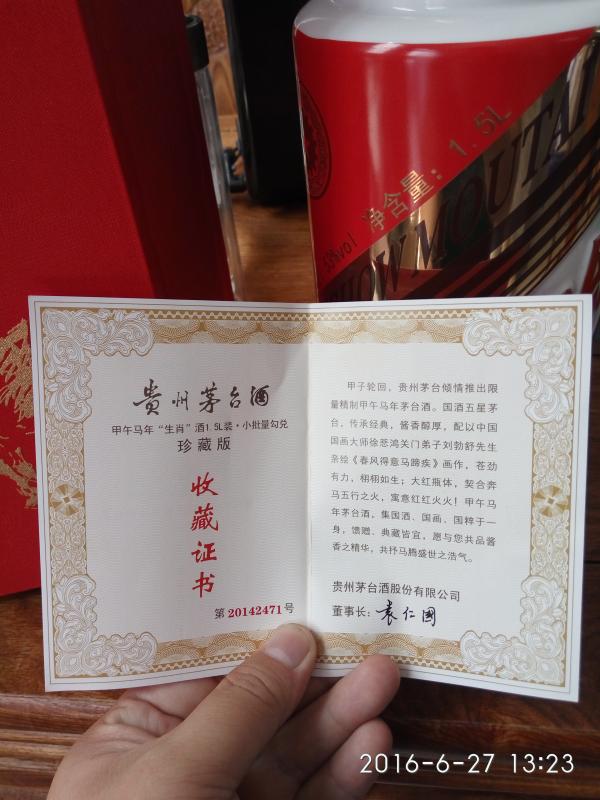 净含量：1.5L
53%vol
KWEICHOW MOUTAI
贵州茅台酒
甲午马年“生肖”酒1.5L装·小批量勾兑
珍藏版
收
藏
证
书
第 20142471 号
甲子轮回，贵州茅台倾情推出限
量精制甲午马年茅台酒。国酒五星茅
台，传承经典，酱香醇厚，配以中国
国画大师徐悲鸿关门弟子刘勃舒先生
亲绘《春风得意马蹄疾》画作，苍劲
有力，栩栩如生；大红瓶体，契合奔
马五行之火，寓意红红火火！甲午马
年茅台酒，集国酒、国画、国粹于一
身，馈赠、典藏皆宜，愿与您共品酱
香之精华，共抒马腾盛世之浩气。
贵州茅台酒股份有限公司
董事长：袁仁国
2016-6-27 13:23